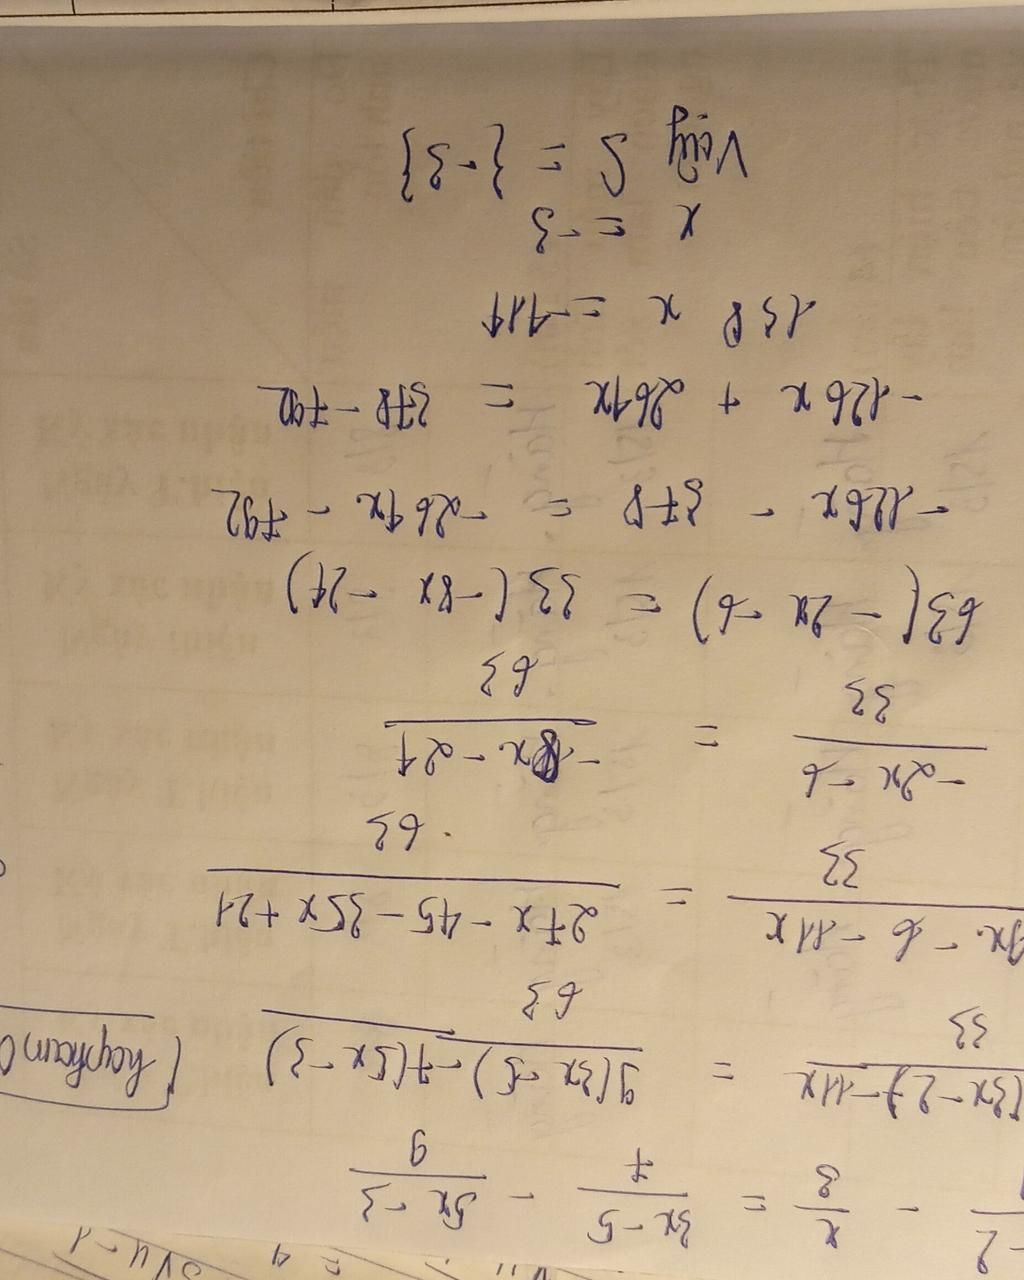 - x/3 = (3x - 5)/7 - (5x - 3)/9
(3x - 2) - 11x / 33 = 9(3x - 5) - 7(5x - 3) / 63
9x - 6 - 11x / 33 = 27x - 45 - 35x + 21 / 63
-2x - 6 / 33 = -8x - 24 / 63
63(-2x - 6) = 33(-8x - 24)
-126x - 378 = -264x - 792
-126x + 264x = 378 - 792
138x = -414
x = -3
Vậy S = {-3}